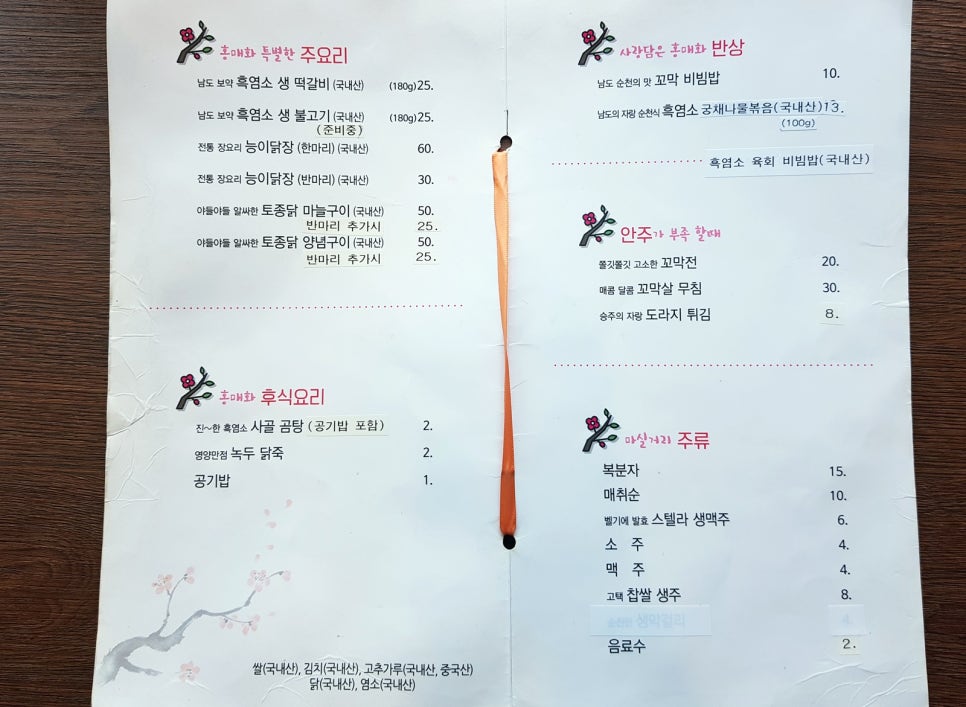 홍매화 특별한 주요리
남도 보약 흑염소 생 떡갈비 (국내산) (180g) 25.
남도 보약 흑염소 생 불고기 (국내산) (180g) 25.
(준비중)
전통 장요리 능이닭장 (한마리) (국내산) 60.
전통 장요리 능이닭장 (반마리) (국내산) 30.
야들야들 알싸한 토종닭 마늘구이 (국내산) 50.
반마리 추가시 25.
야들야들 알싸한 토종닭 양념구이 (국내산) 50.
반마리 추가시 25.
홍매화 후식요리
진~한 흑염소 사골 곰탕 (공기밥 포함) 2.
영양만점 녹두 닭죽 2.
공기밥 1.
쌀(국내산), 김치(국내산), 고추가루(국내산, 중국산)
닭(국내산), 염소(국내산)
사랑담은 홍매화 반상
남도 순천의 맛 꼬막 비빔밥 10.
남도의 자랑 순천식 흑염소 궁채나물볶음(국내산) 13.
(100g)
흑염소 육회 비빔밥(국내산)
안주가 부족 할때
쫄깃쫄깃 고소한 꼬막전 20.
매콤 달콤 꼬막살 무침 30.
승주의 자랑 도라지 튀김 8.
마실거리 주류
복분자 15.
매취순 10.
벨기에 발효 스텔라 생맥주 6.
소 주 4.
맥 주 4.
고택 찹쌀 생주 8.
생막걸리 4.
음료수 2.